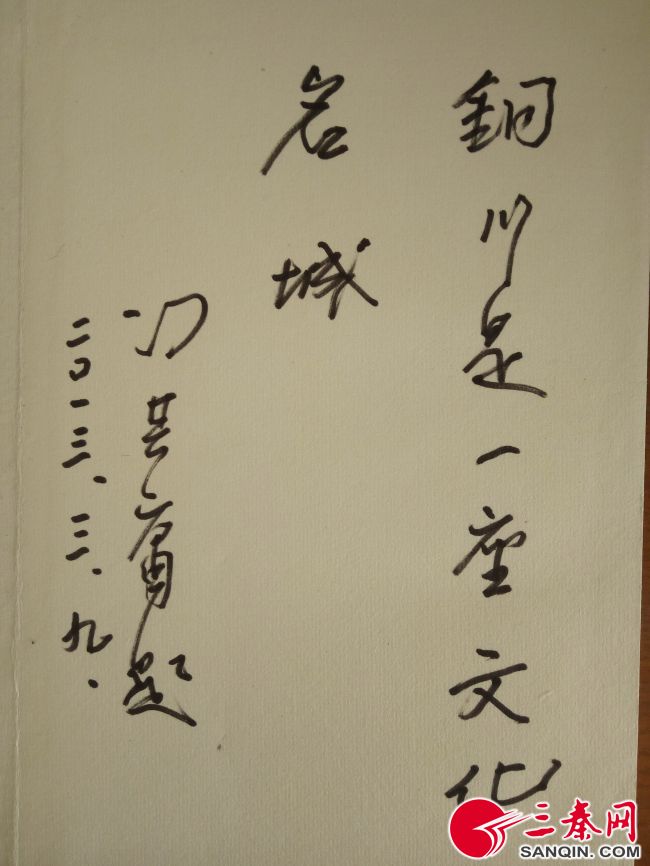 銅川是一座文化
名城
冯其庸题
二〇一三、三、九、
三秦网
SANQIN.COM